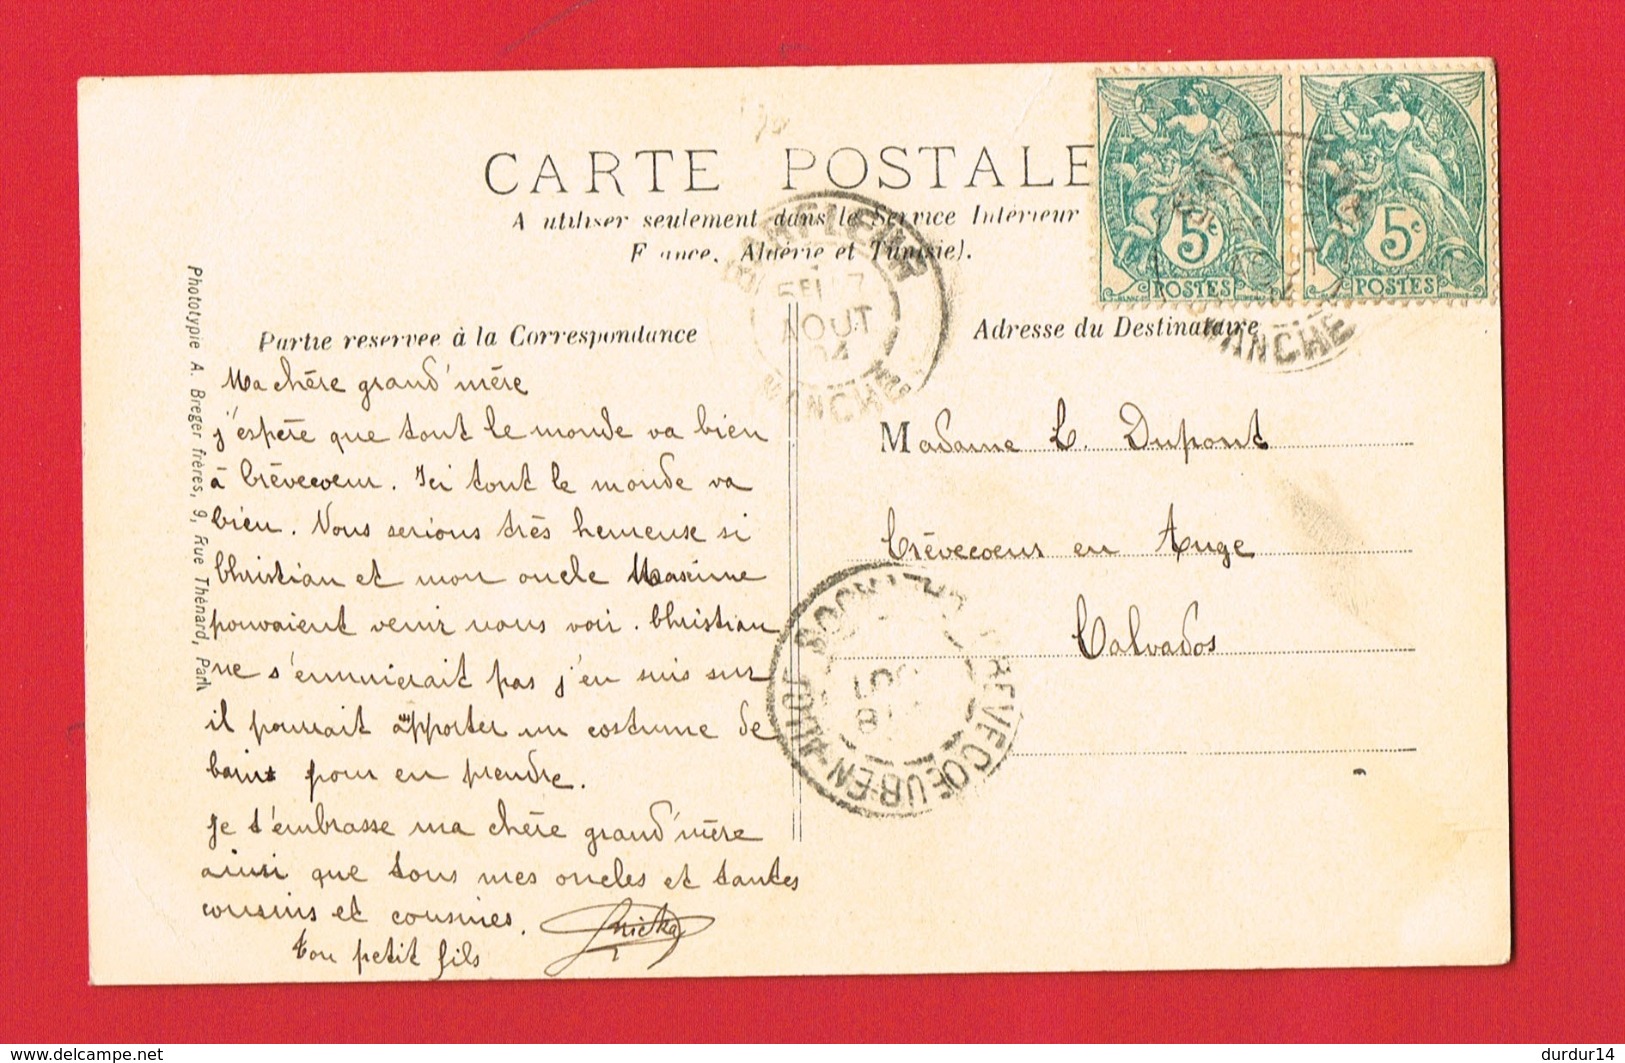 CARTE POSTALE
A utiliser seulement dans le Service Intérieur
France, Algérie et Tunisie).
5c
POSTES
5c
POSTES
AOUT
04
MANCHE
MANCHE
Partie reservee à la Correspondance
Ma chère grand'mère
j'espère que tout le monde va bien
à Crèvecoeur. Ici tout le monde va
bien. Nous serions très heureuse si
Christian et mon oncle Maxime
pouvaient venir nous voir. Christian
ne s'ennuierait pas j'en suis sur
il pourrait apporter un costume de
bain pour en prendre.
Je t'embrasse ma chère grand'mère
ainsi que tous mes oncles et tantes
cousins et cousines.
ton petit fils
Adresse du Destinataire
Madame L. Dupont
Crèvecoeur en Auge
Calvados
Phototypie A. Breger frères, 9, Rue Thénard, Paris
www.delcampe.net
durdur14